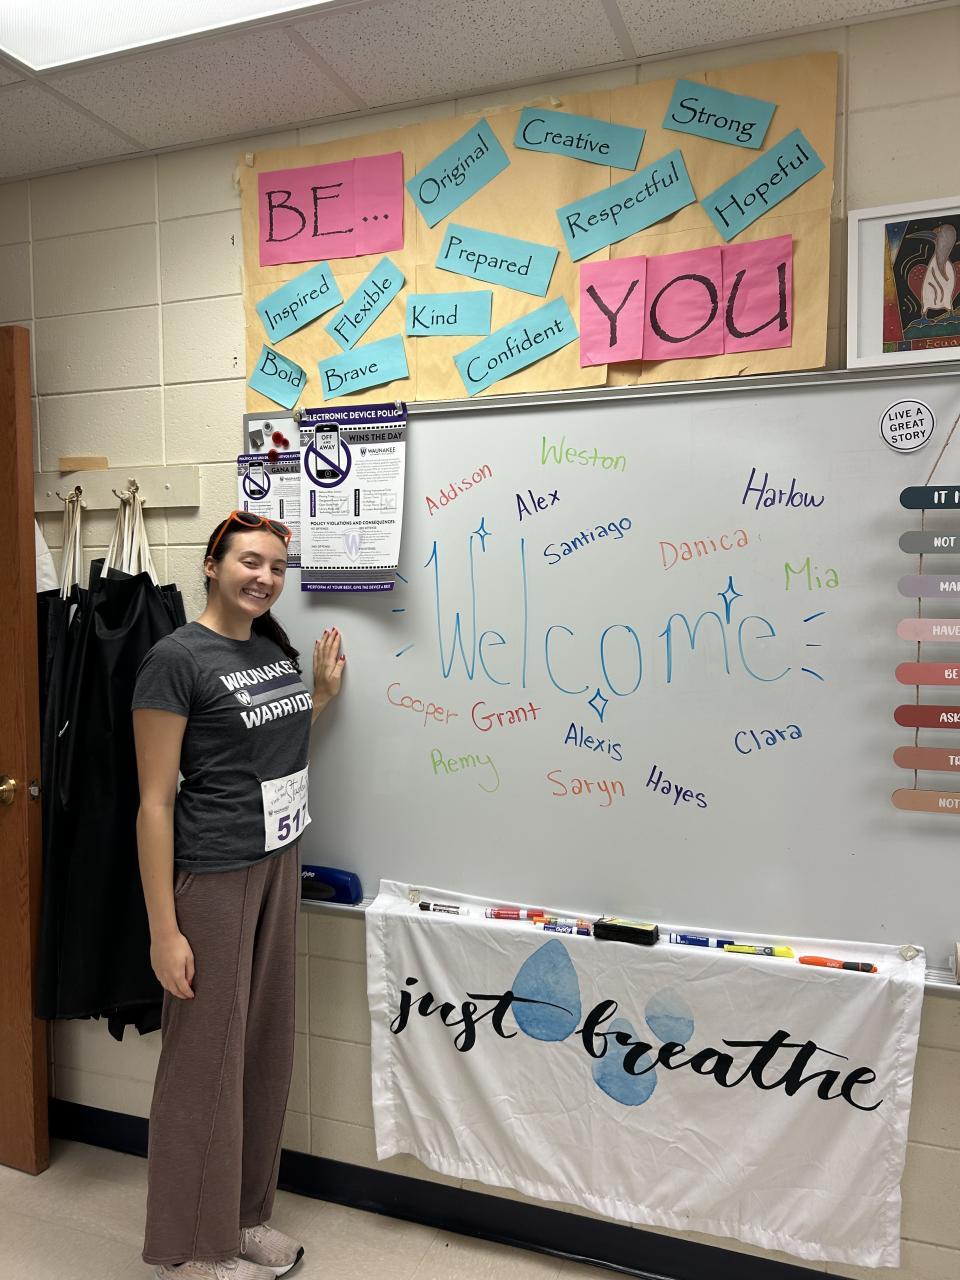 BE...
Original
Creative
Strong
Respectful
Hopeful
Prepared
Inspired
Flexible
Kind
Confident
Bold
Brave
YOU
ELECTRONIC DEVICE POLIC
WINS THE DAY
OFF
AND
AWAY
WAUNAKEE
POLICY VIOLATIONS AND CONSEQUENCES:
PERFORM AT YOUR BEST, GIVE THE DEVICE A REST
GANA EL
LIVE A
GREAT
STORY
Weston
Addison
Alex
Harlow
Santiago
Danica
Mia
Welcome
Cooper
Grant
Alexis
Clara
Remy
Saryn
Hayes
IT
NOT
MAK
HAVE
BE
ASK
TR
NOT
WAUNAKEE
WARRIOR
517
just breathe
Ecua